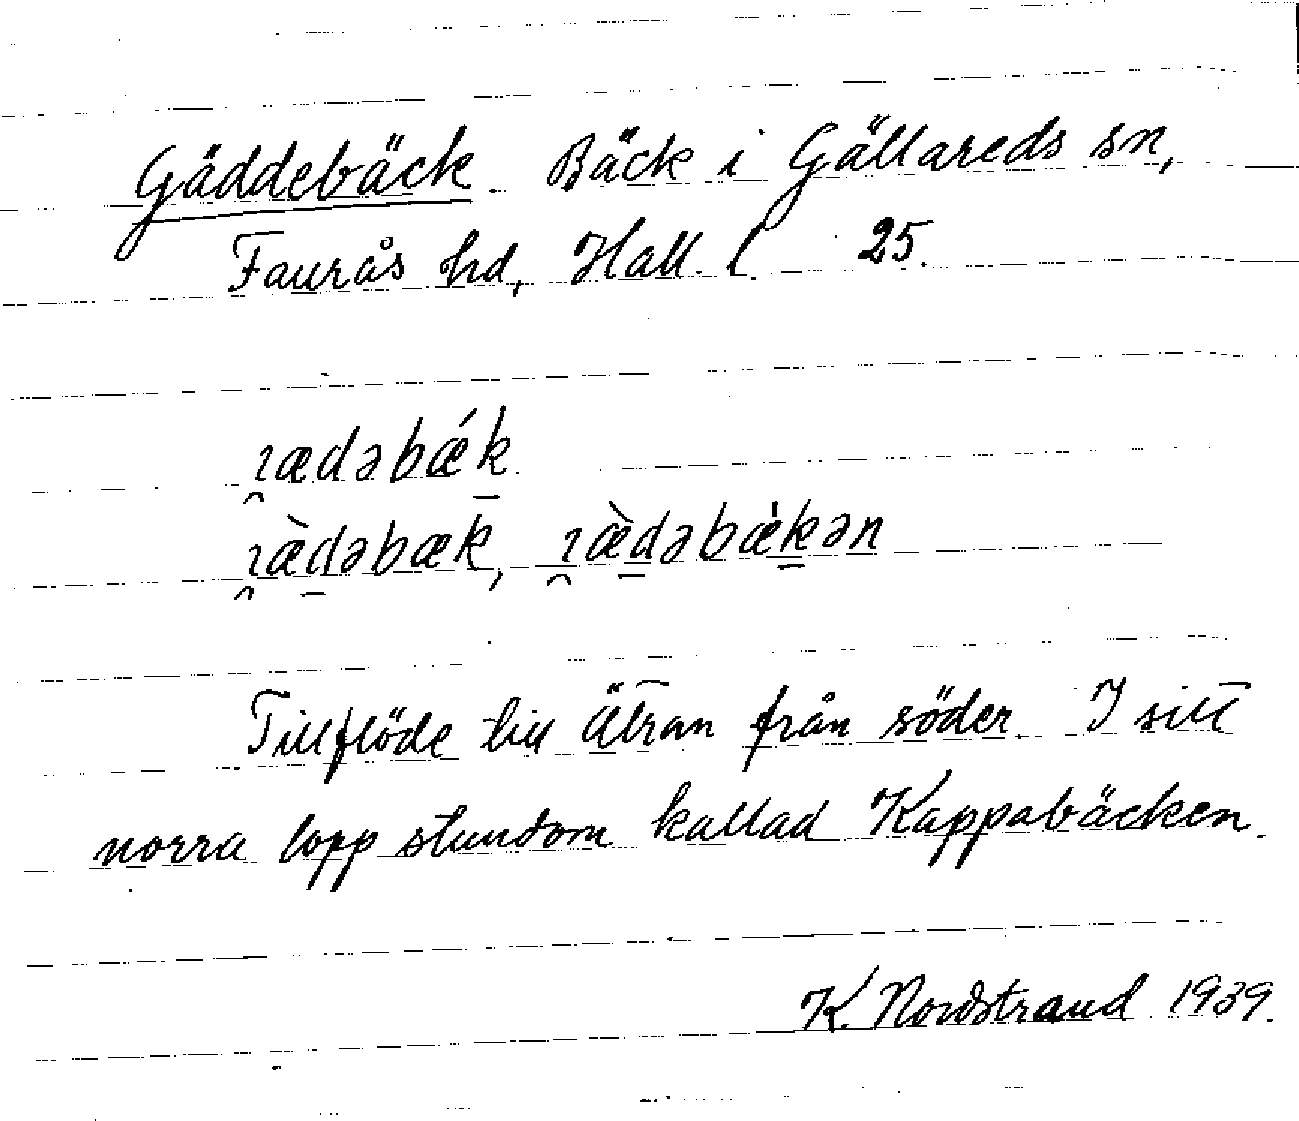 Gäddebäck Bäck i Gällareds sn,
Faurås hd, Hall. l. 25.
ɿ̯ædəbǽk̲
ɿ̯æ̀d̲əbæk, ɿ̯æ̀d̲əbæ̍k̲ən
Tillflöde till Ätran från söder. I sitt
norra lopp stundom kallad Kappabäcken.
K. Nordstrand 1939.